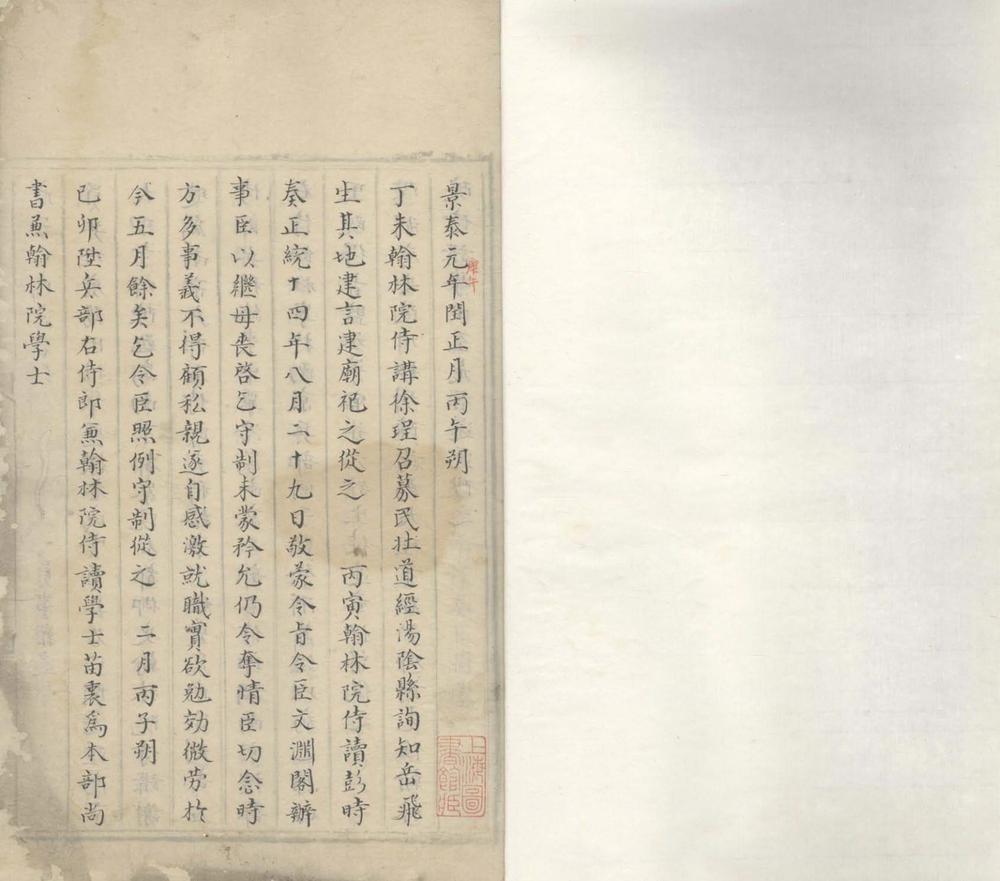 景泰元年閏正月丙午朔
庚午
丁未翰林院侍講徐珵召募民壯道經湯陰縣詢知岳飛
生其地建言建廟祀之從之　丙寅翰林院侍讀彭時
奏正統十四年八月二十九日敬蒙令旨令臣文淵閣辦
事臣以繼母喪啓乞守制未蒙矜允仍令奪情臣切念時
方多事義不得顧私親遂自感激就職實欲勉効微勞於
今五月餘矣乞令臣照例守制從之　二月丙子朔
己卯陞兵部右侍郎兼翰林院侍讀學士苗衷為本部尚
書兼翰林院學士
上海圖
書館